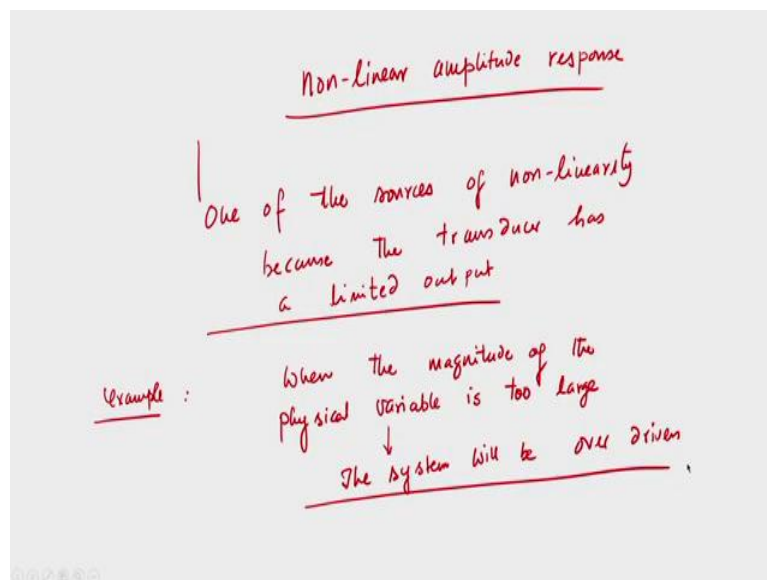 Non-linear amplitude response
One of the sources of non-linearity
because the transducer has
a limited output
Example : When the magnitude of the
physical variable is too large
↓
The system will be over driven